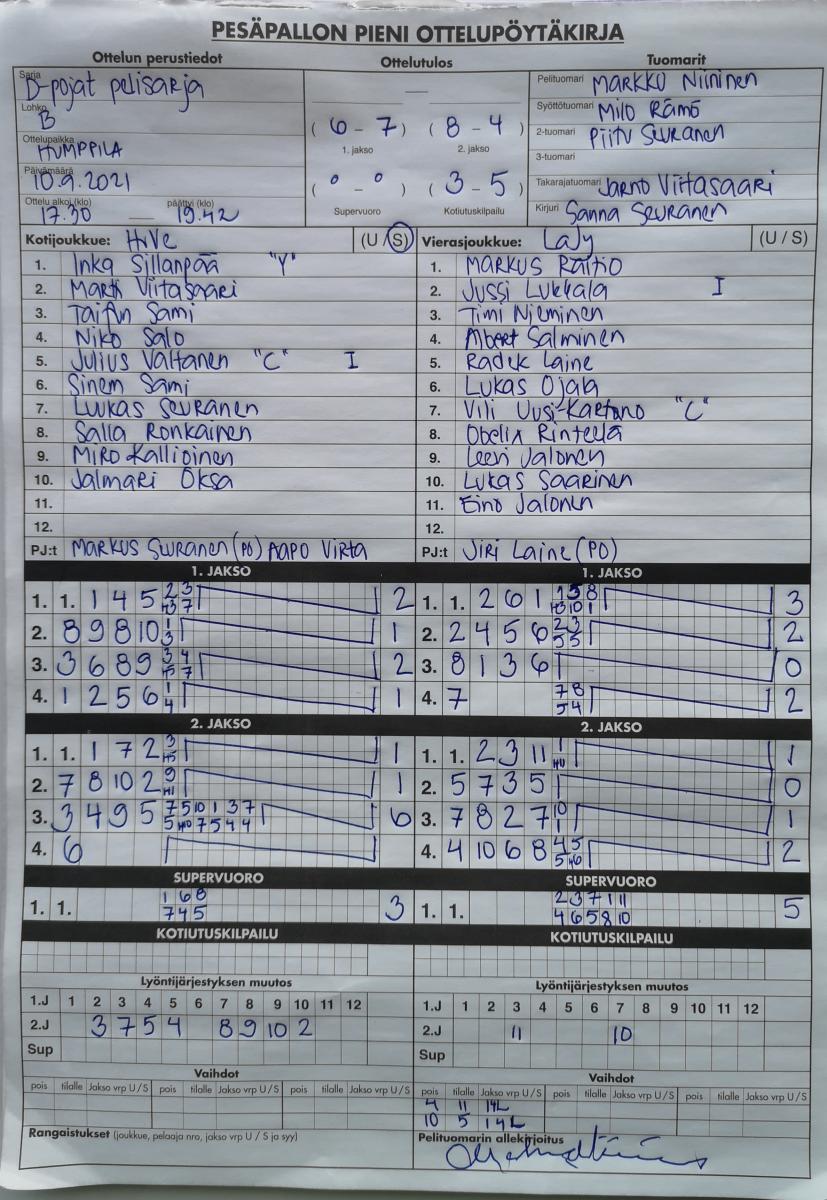 PESÄPALLON PIENI OTTELUPÖYTÄKIRJA
Ottelun perustiedot
Sarja D-pojat pelisarja
Lohko B
Ottelupaikka HUMPPILA
Päivämäärä 10.9.2021
Ottelu alkoi (klo) 17.30 — päättyi (klo) 19.42
Ottelutulos
—
( 6 - 7 ) ( 8 - 4 )
1. jakso 2. jakso
( 0 - 0 ) ( 3 - 5 )
Supervuoro Kotiutuskilpailu
Tuomarit
Pelituomari MARKKU Niininen
Syöttötuomari Milo Rämö
2-tuomari Piitu Seuranen
3-tuomari
Takarajatuomari Jarno Viitasaari
Kirjuri Sanna Seuranen
Kotijoukkue: HiVe (U / S)
1. Inka Sillanpää "Y"
2. Martti Viitasaari
3. Taifun Sami
4. Niko Salo
5. Julius Valtanen "C" I
6. Sinem Sami
7. Luukas Seuranen
8. Salla Ronkainen
9. Miro Kallioinen
10. Jalmari Oksa
11.
12.
PJ:t MARKUS SEURANEN (PO) AAPO VIRTA
Vierasjoukkue: LaJy (U / S)
1. MARKUS RAITIO
2. Jussi Lukkala I
3. Timi Nieminen
4. Albert Salminen
5. Radek Laine
6. Lukas Ojala
7. Vili Uusi-Kaetano "C"
8. Obelix Rinteelä
9. Leevi Jalonen
10. Lukas Saarinen
11. Eino Jalonen
12.
PJ:t JIRI LAINE (PO)
1. JAKSO
1. 1. 1 4 5 2 3 2
H3 7
2. 8 9 8 10 1 1
3
3. 3 6 8 9 3 4 2
H5 7
4. 1 2 5 6 1 1
4
2. JAKSO
1. 1. 1 7 2 3 1
H5
2. 7 8 10 2 9 1
H1
3. 3 4 9 5 7 5 10 1 3 7 6
5 H10 7 5 4 4
4. 6
SUPERVUORO
1. 1. 1 6 8 3
7 4 5
KOTIUTUSKILPAILU
Lyöntijärjestyksen muutos
1.J 1 2 3 4 5 6 7 8 9 10 11 12
2.J 3 7 5 4 8 9 10 2
Sup
Vaihdot
pois tilalle Jakso vrp U / S pois tilalle Jakso vrp U / S pois tilalle Jakso vrp U / S
Rangaistukset (joukkue, pelaaja nro, jakso vrp U / S ja syy)
1. JAKSO
1. 1. 2 6 1 1 5 8 3
H3 10 1
2. 2 4 5 6 2 3 2
5 5
3. 8 1 3 6 0
4. 7 7 8 2
5 4
2. JAKSO
1. 1. 2 3 11 1 1
H11
2. 5 7 3 5 0
3. 7 8 2 7 10 1
1
4. 4 10 6 8 4 5 2
5 H6
SUPERVUORO
1. 1. 2 3 7 1 11 5
4 6 5 8 10
KOTIUTUSKILPAILU
Lyöntijärjestyksen muutos
1.J 1 2 3 4 5 6 7 8 9 10 11 12
2.J 11 10
Sup
Vaihdot
pois tilalle Jakso vrp U / S pois tilalle Jakso vrp U / S pois tilalle Jakso vrp U / S
4 11 14L
10 5 14L
Pelituomarin allekirjoitus